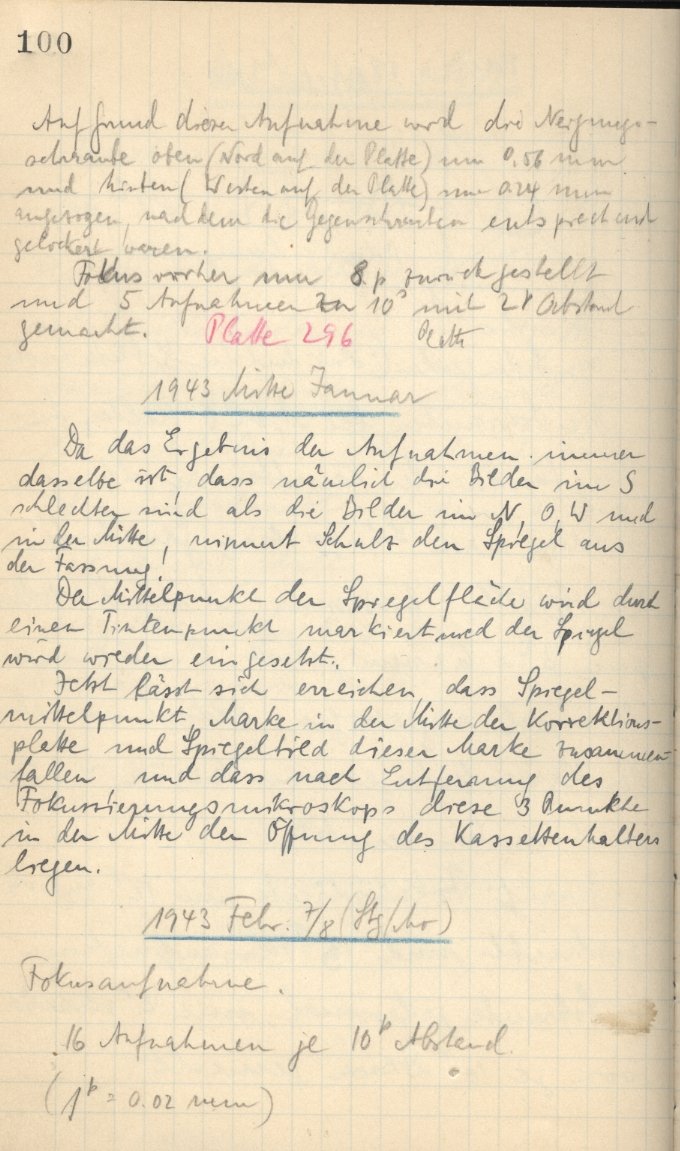 100
Auf Grund dieser Aufnahme wird die Neigungs-
schraube oben (Nord auf der Platte) um 0,56 mm
und hinten (Westen auf der Platte) um 0.24 mm
angezogen, nachdem die Gegenschrauben entsprechend
gelockert waren.
Fokus vorher um 8 p zurückgestellt
und 5 Aufnahmen zu 10ˢ mit 2ᵖ Abstand
gemacht. Platte 296 Platte
1943 Mitte Januar
Da das Ergebnis der Aufnahmen immer
dasselbe ist, dass nämlich die Bilder im S
schlechter sind als die Bilder im N, O, W und
in der Mitte, nimmt Schulz den Spiegel aus
der Fassung!
Der Mittelpunkt der Spiegelfläche wird durch
einen Tintenpunkt markiert und der Spiegel
wird wieder eingesetzt.
Jetzt lässt sich erreichen, dass Spiegel-
mittelpunkt, Marke in der Mitte der Korrektions-
platte und Spiegelbild dieser Marke zusammen-
fallen und dass nach Entfernung des
Fokussierungsmikroskops diese 3 Punkte
in der Mitte der Öffnung des Kassettenhalters
liegen.
1943 Febr. 7/8 (Stg/Mo)
Fokusaufnahme.
16 Aufnahmen je 10ᵖ Abstand
(1ᵖ = 0.02 mm)